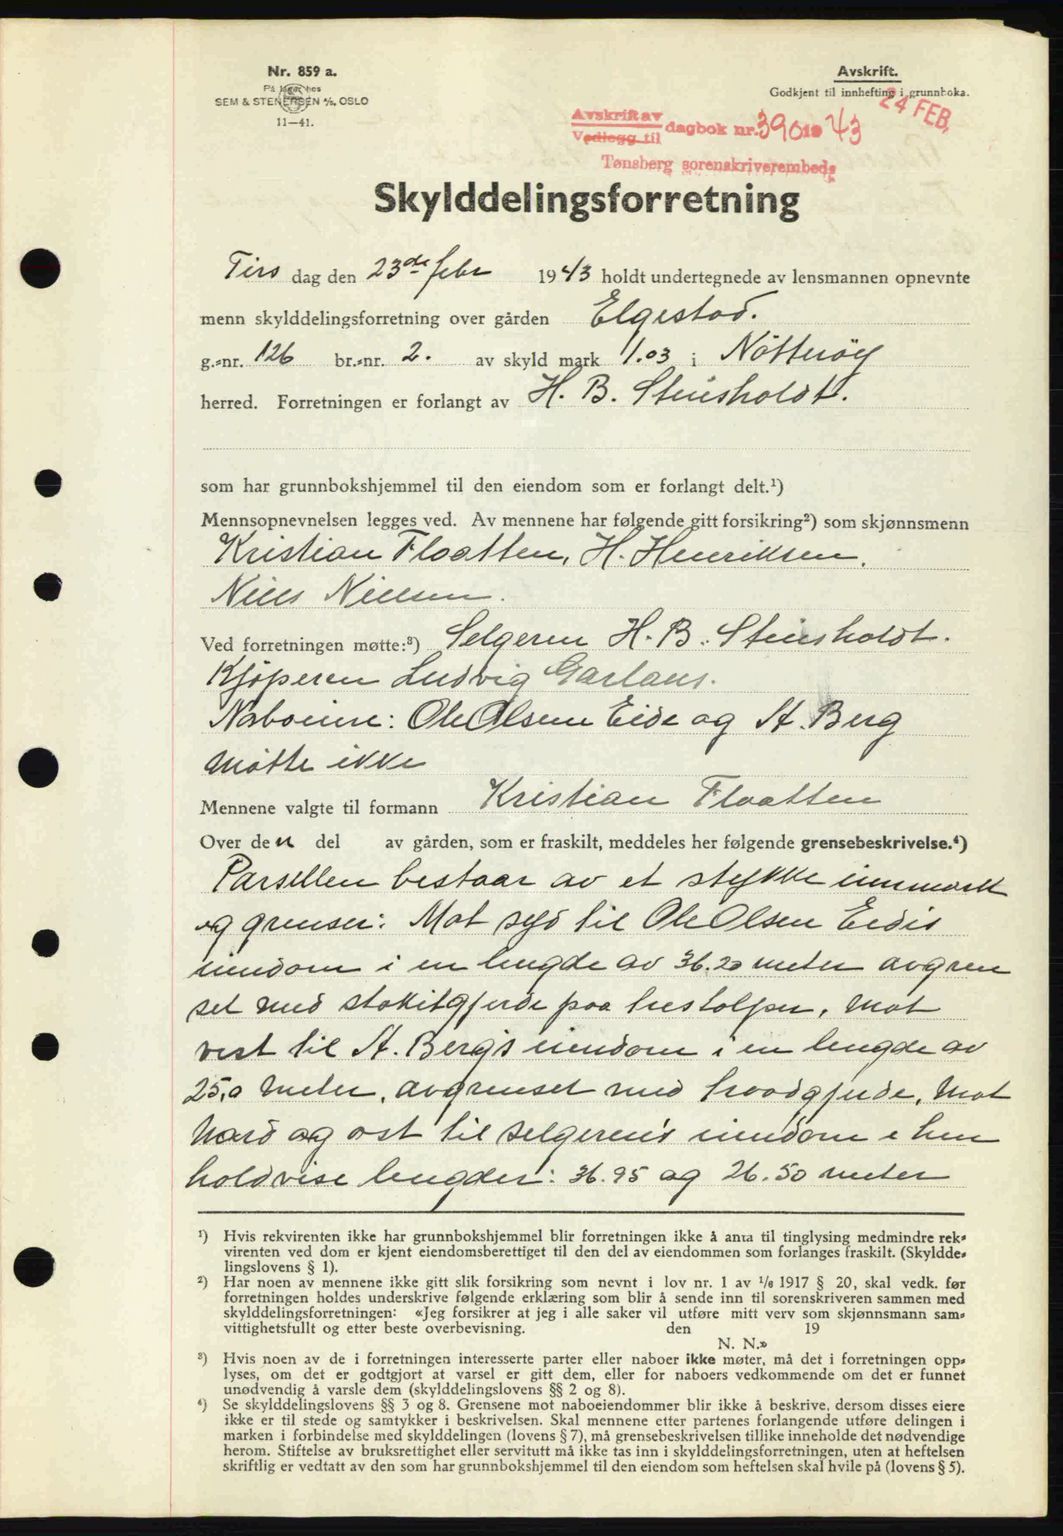 Nr. 859 a.
På lager hos
SEM & STENERSEN A/S, OSLO
11—41.
Avskrift.
Godkjent til innhefting i grunnboka.
24 FEB.
Avskrift av
Vedlegg til dagbok nr. 390 19 43
Tønsberg sorenskriverembede
Skylddelingsforretning
Tirs dag den 23de febr 1943 holdt undertegnede av lensmannen opnevnte
menn skylddelingsforretning over gården Elgestad.
g.-nr. 126 br.-nr. 2. av skyld mark 1.03 i Nötteröy
herred. Forretningen er forlangt av H. B. Steinsholdt.
som har grunnbokshjemmel til den eiendom som er forlangt delt.¹)
Mennsopnevnelsen legges ved. Av mennene har følgende gitt forsikring²) som skjønnsmenn
Kristian Flaatten, H. Henriksen,
Niels Nielsen.
Ved forretningen møtte:³) Selgeren H. B. Steinsholdt.
Kjöperen Ludvig Garlaus.
Naboeine: Ole Olsen Eide og St. Berg
Møtte ikke
Mennene valgte til formann Kristian Flaatten
Over den del av gården, som er fraskilt, meddeles her følgende grensebeskrivelse.⁴)
Parsellen bestaar av et stykke innmark
og grenser: Mot syd til Ole Olsen Eides
eiendom i en lengde av 36.20 meter avgren
set med stakitgjerde paa trestolper, Mot
vest til St. Bergs eiendom i en lengde av
25,0 meter, avgrenset med traadgjerde, Mot
Nord og øst til selgerens eiendom i hen
holdvise lengder: 36.95 og 26.50 meter
¹) Hvis rekvirenten ikke har grunnbokshjemmel blir forretningen ikke å anta til tinglysing medmindre rek-
virenten ved dom er kjent eiendomsberettiget til den del av eiendommen som forlanges fraskilt. (Skyldde-
lingslovens § 1).
²) Har noen av mennene ikke gitt slik forsikring som nevnt i lov nr. 1 av ¹/₆ 1917 § 20, skal vedk. før
forretningen holdes underskrive følgende erklæring som blir å sende inn til sorenskriveren sammen med
skylddelingsforretningen: «Jeg forsikrer at jeg i alle saker vil utføre mitt verv som skjønnsmann sam-
vittighetsfullt og etter beste overbevisning. den 19
N. N.»
³) Hvis noen av de i forretningen interesserte parter eller naboer ikke møter, må det i forretningen opp-
lyses, om det er godtgjort at varsel er gitt dem, eller for naboers vedkommende om det er funnet
unødvendig å varsle dem (skylddelingslovens §§ 2 og 8).
⁴) Se skylddelingslovens §§ 3 og 8. Grensene mot naboeiendommer blir ikke å beskrive, dersom disses eiere
ikke er til stede og samtykker i beskrivelsen. Skal mennene etter partenes forlangende utføre delingen i
marken i forbindelse med skylddelingen (lovens § 7), må grensebeskrivelsen tillike inneholde det nødvendige
herom. Stiftelse av bruksrettighet eller servitutt må ikke tas inn i skylddelingsforretningen, uten at heftelsen
skriftlig er vedtatt av den som har grunnbokshjemmel til den eiendom som heftelsen skal hvile på (lovens § 5).